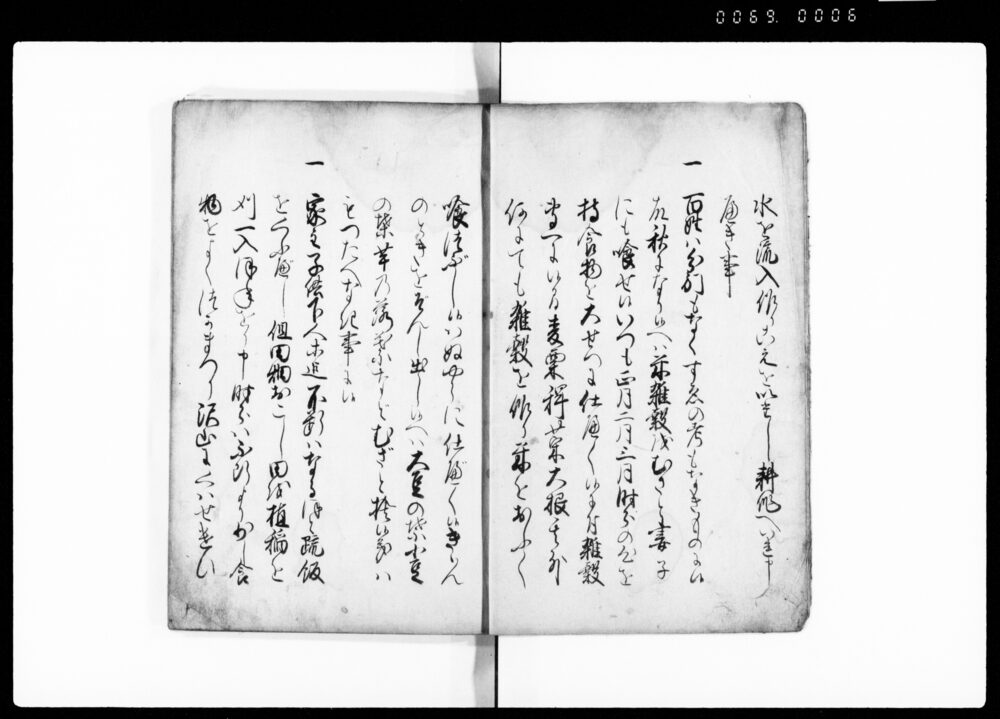 0069. 0006
水を流入作りこえを以たし耕作へいれ申
へき事
一 百姓ハ分別もなくすゑの考もなきものに候
故秋になり候へハ米雑穀をむさと妻子
にも喰せ候いつも正月二月三月時分の心を
持食物を大せつに仕へく候に付雑穀
専一に候間麦粟稗菜大根其外
何にても雑穀を作り米をおふく
喰つぶし候ハぬやうに仕べく候きゝん
のときをぞんし出し候へハ大豆の葉小豆
の葉芋乃落葉なとむざと捨候儀ハ
もつたへなき事に候
一 家主子供下人等迄不断ハなるほと疏飯
をくふべし但田畑おこし田を植稲を
刈一入ほねをり申時分ハふ断より少し食
物をよくつかまつり沢山にくハせ遣ひ